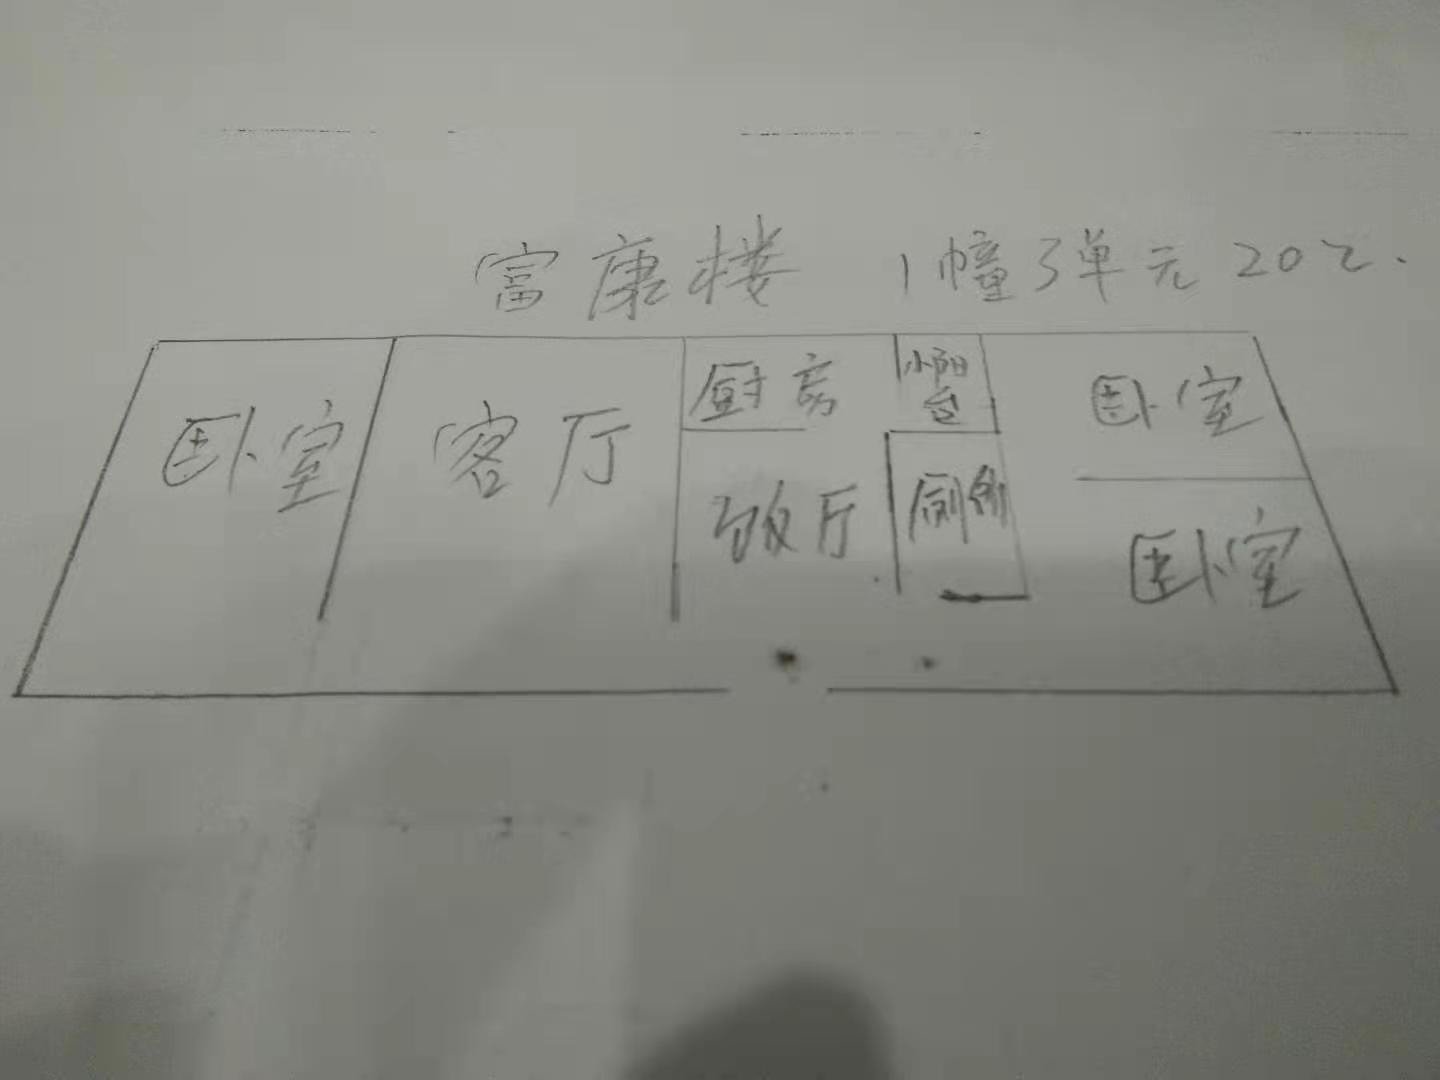 富康楼 1幢3单元202.
卧室 客厅 厨房 小阳台 卧室
饭厅 厕所 卧室